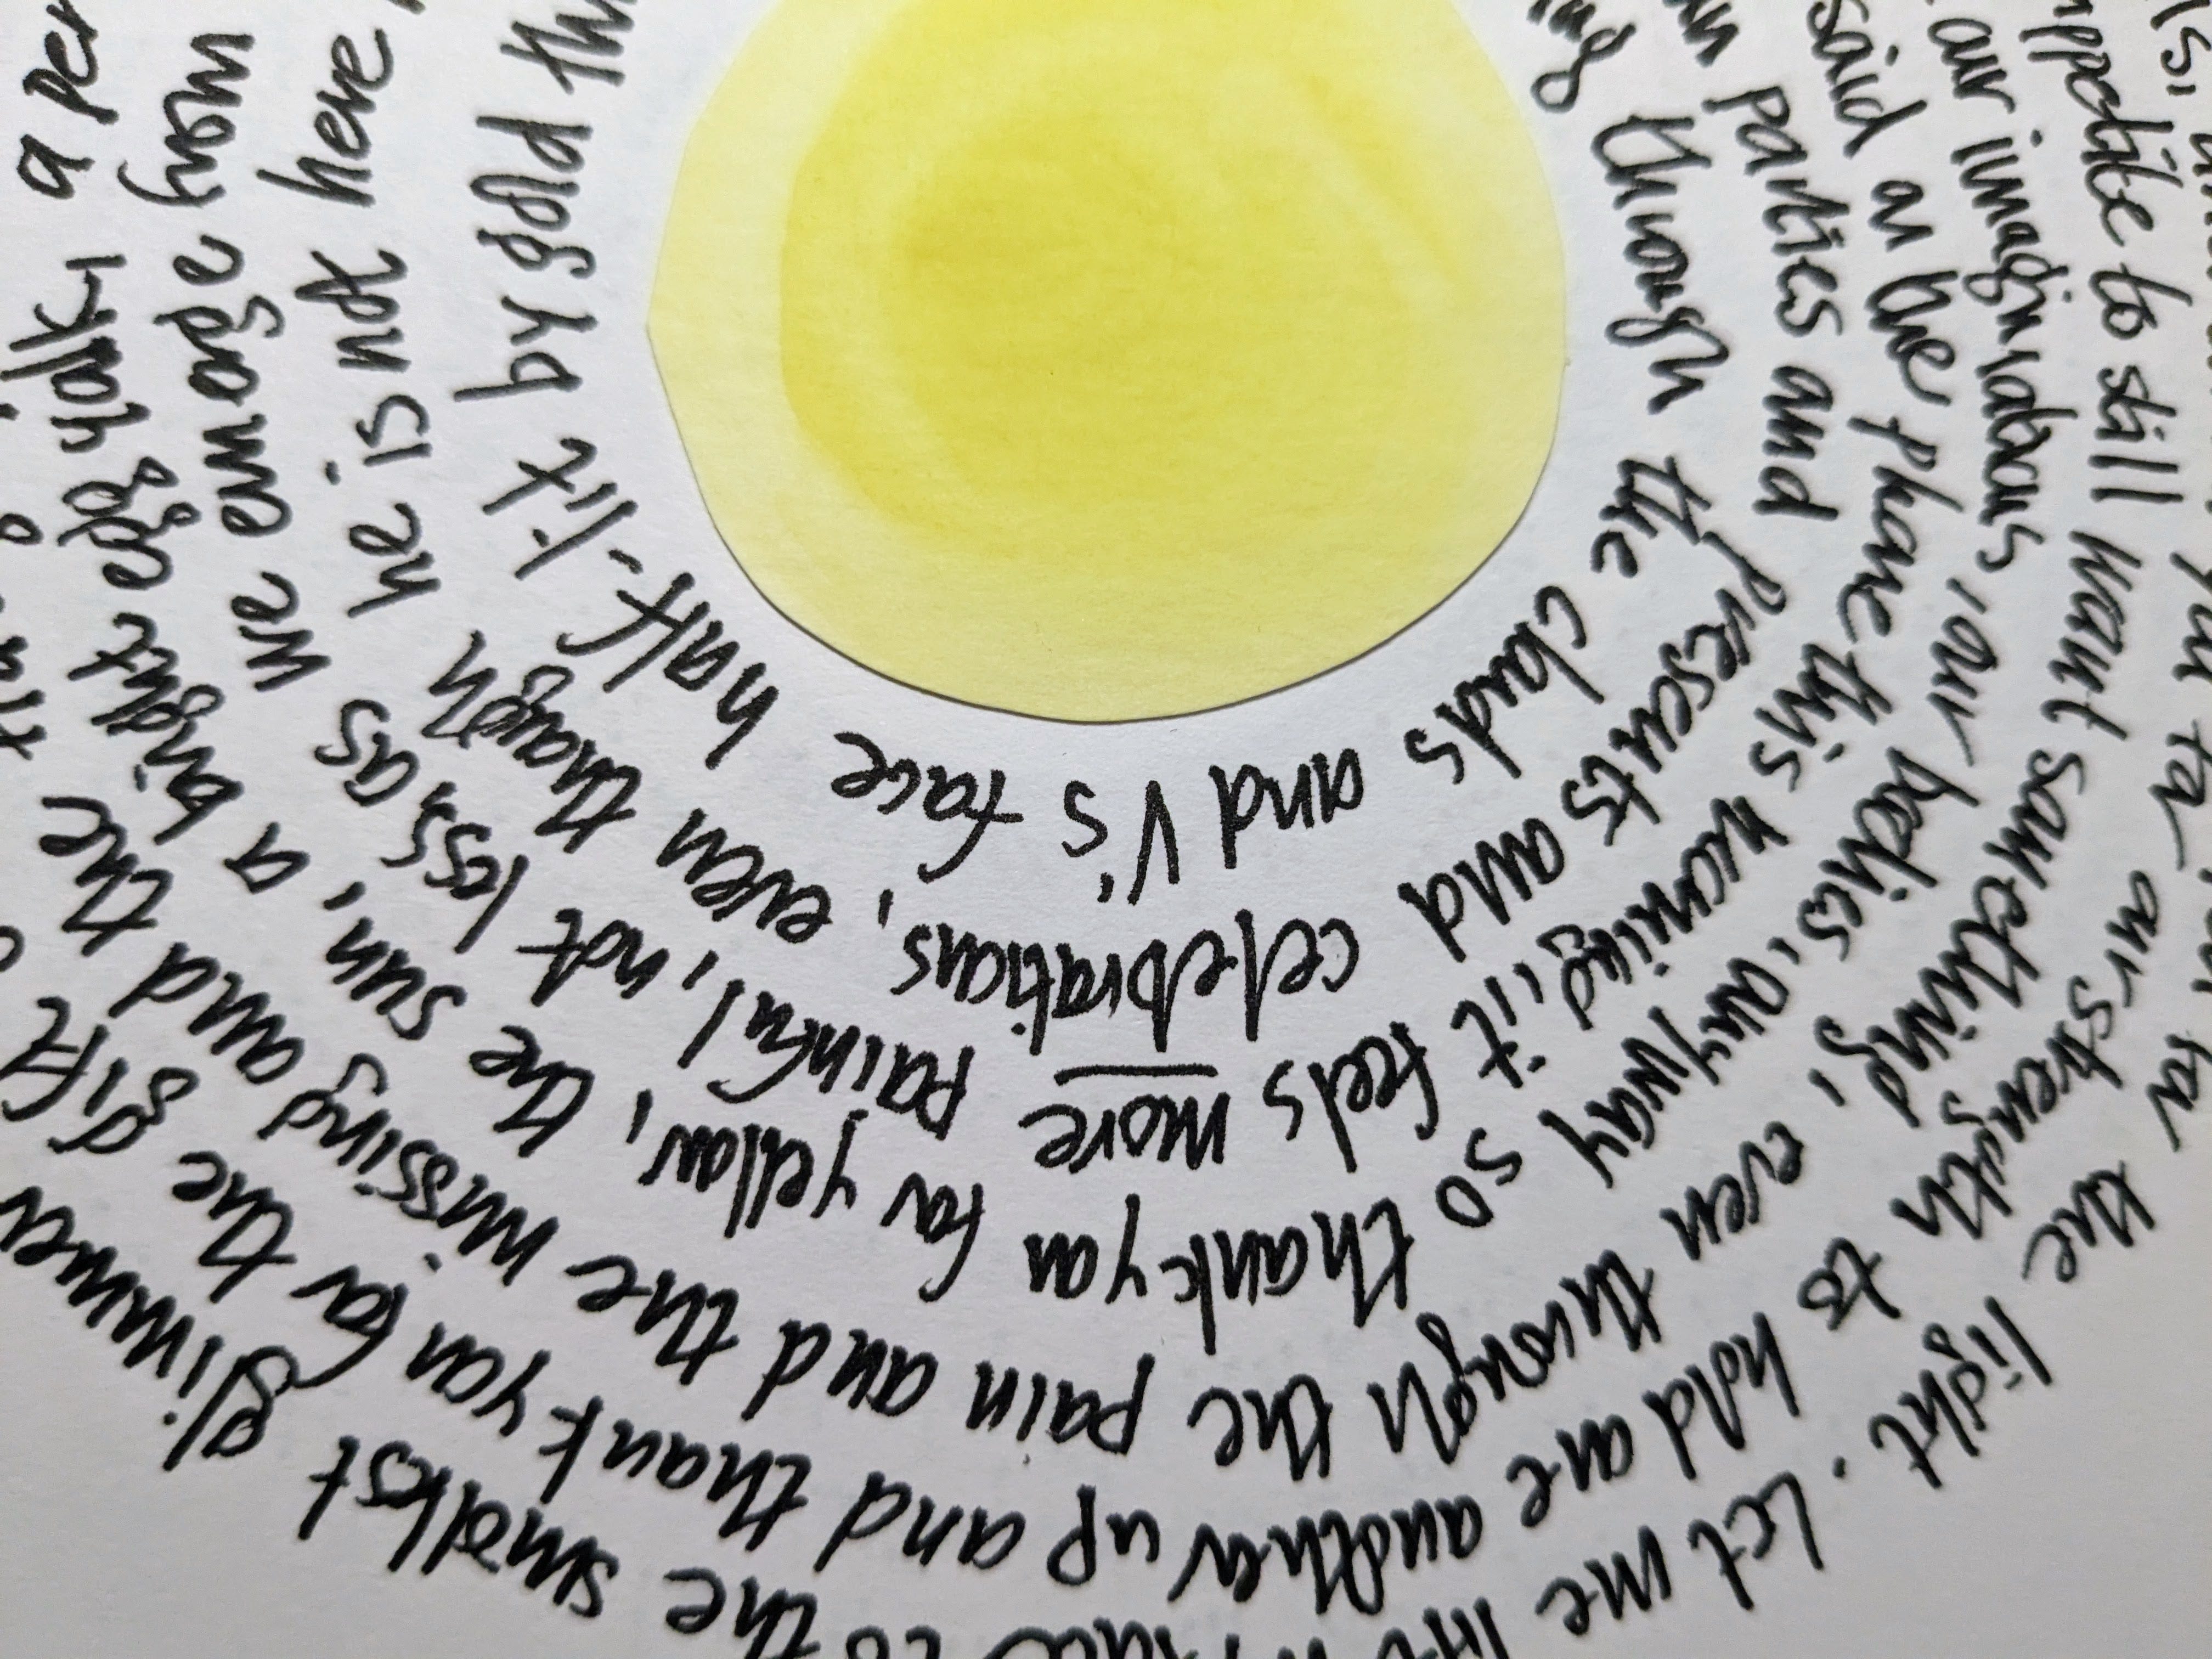 through the clouds and V's face half-lit by gold
parties and presents and celebrations, even though he is not here
said on the phone this morning, it feels more painful, not less as we emerge from
our imaginations, our bodies, anyway so thank you for yellow, the sun, a bright egg yolk, a
appetite to still want something, even through the pain and the missing and the
our strength to hold one another up and thank you for the gift
the light. Let me
to the smallest glimmer